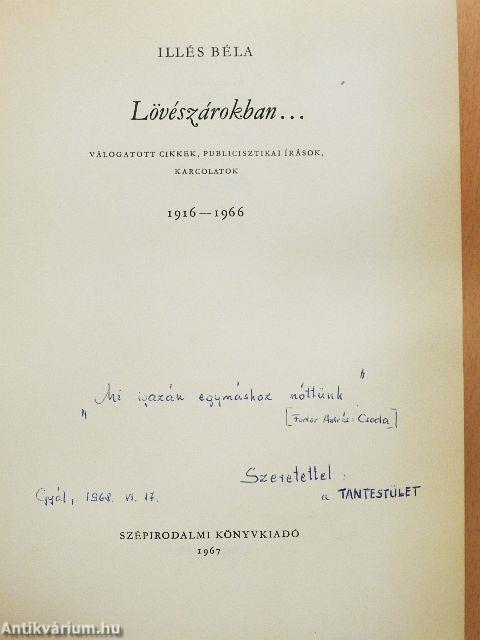 ILLÉS BÉLA
Lövészárokban...
VÁLOGATOTT CIKKEK, PUBLICISZTIKAI ÍRÁSOK,
KARCOLATOK
1916—1966
„Mi igazán egymáshoz nőttünk"
[Fodor András: Csoda]
Szeretettel:
Gyál, 1968. VI. 17.
a TANTESTÜLET
SZÉPIRODALMI KÖNYVKIADÓ
1967
Antikvárium.hu